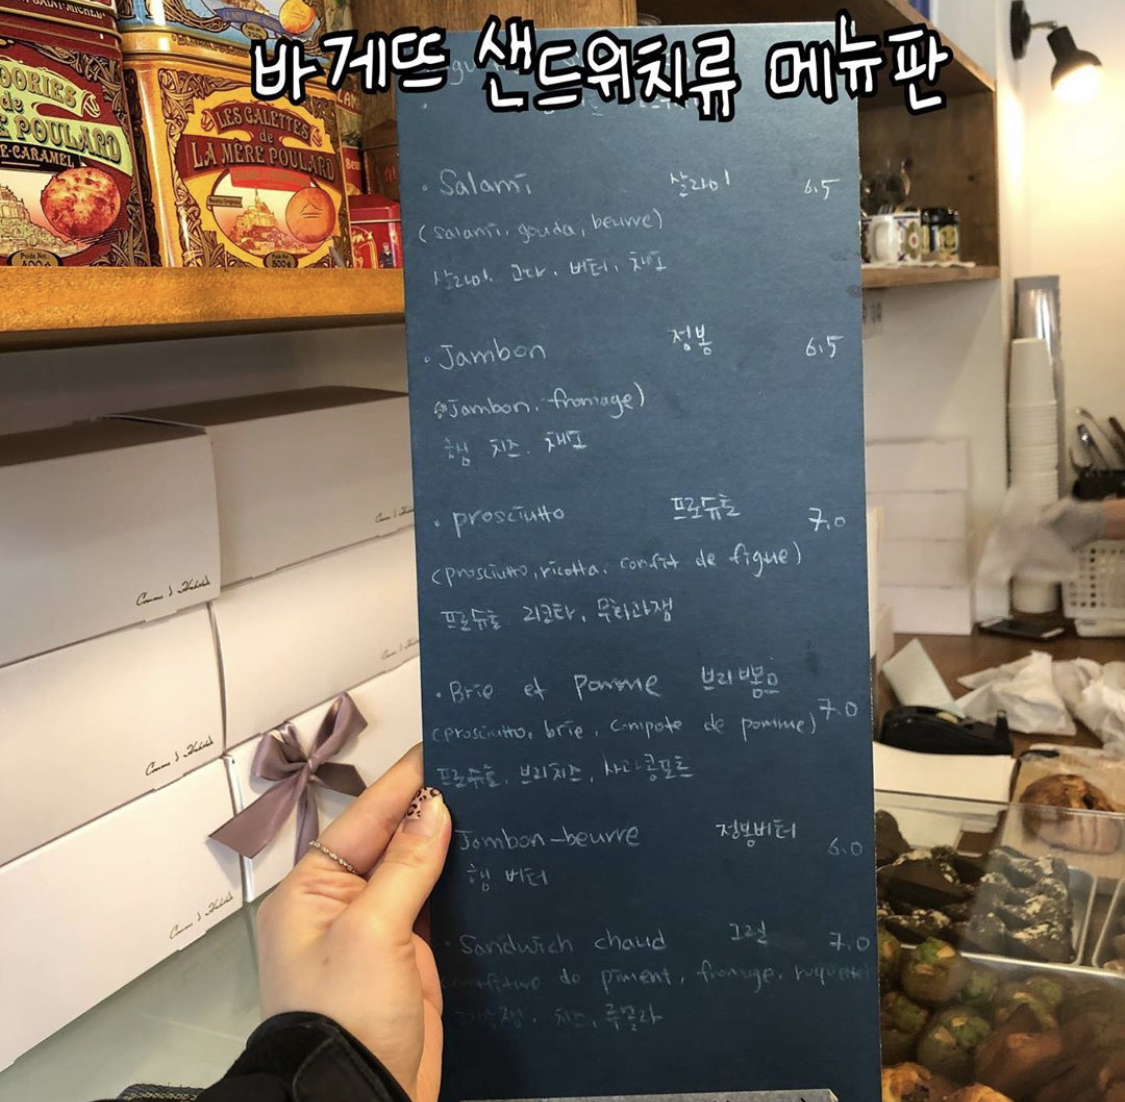 바게뜨 샌드위치류 메뉴판
SAINT-MICHEL
de
POULARD
E-CARAMEL
LES GALETTES
de
LA MÈRE POULARD
· Salami 살라미 6.5
(salami, gouda, beurre)
살라미, 고다, 버터, 채소
· Jambon 정봉 6.5
(Jambon, fromage)
햄 치즈, 채소
· prosciutto 프로슈토 7.0
(prosciutto, ricotta, confit de figue)
프로슈토 리코타, 무화과잼
· Brie et pomme 브리뽐므 7.0
(prosciutto, brie, compote de pomme)
프로슈토, 브리치즈, 사과콩포트
Jambon-beurre 정봉버터 6.0
햄 버터
· Sandwich chaud 7.0
de piment, fromage, ruquette
치즈, 루꼴라